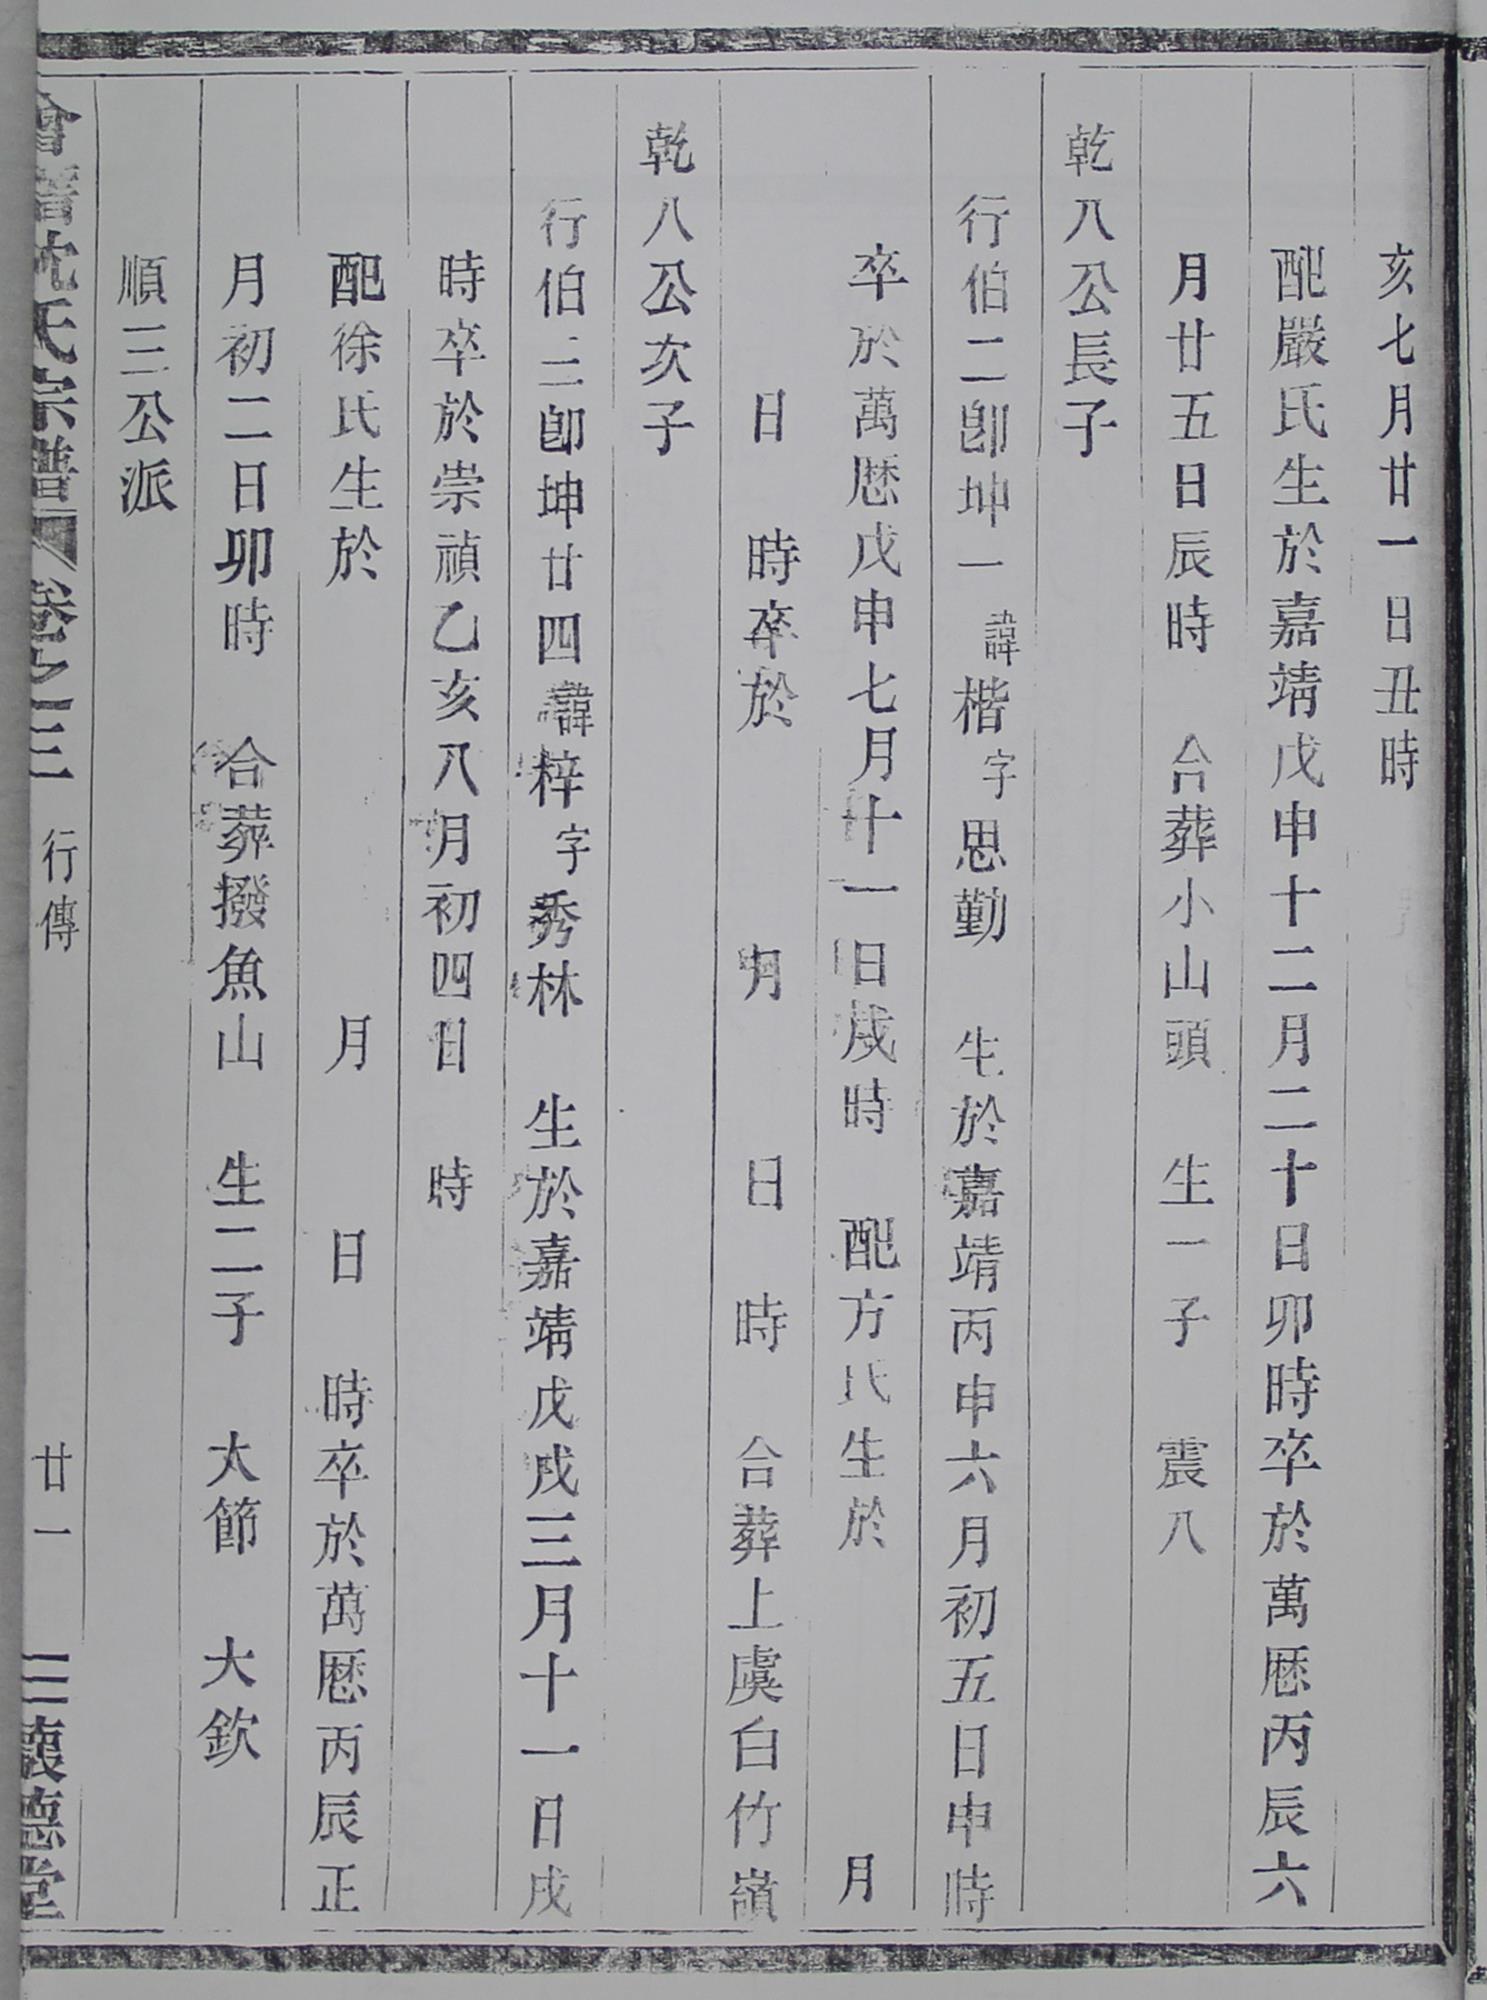 亥七月廿一日丑時
配嚴氏生於嘉靖戊申十二月二十日卯時卒於萬厯丙辰六
月廿五日辰時　合葬小山頭　生一子　震八
乾八公長子
行伯二卽坤一諱楷字思勤　生於嘉靖丙申六月初五日申時
卒於萬厯戊申七月十一日戌時　配方氏生於　月
日　時卒於　月　日　時　合葬上虞白竹嶺
乾八公次子
行伯三卽坤廿四諱梓字秀林　生於嘉靖戊戌三月十一日戌
時卒於崇禎乙亥八月初四日　時
配徐氏生於　月　日　時卒於萬厯丙辰正
月初二日卯時　合葬撥魚山　生二子　大節　大欽
順三公派
會稽沈氏宗譜　卷之三　行傳　廿一　懷德堂